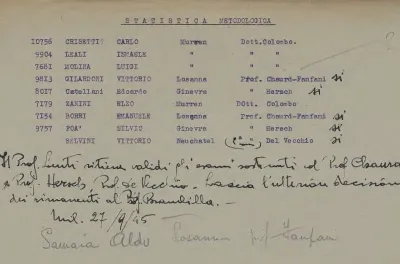 STATISTICA METODOLOGICA
10756 GHISETTI CARLO Murren Dott. Colombo
9904 LEALI ISMAELE " " "
7681 MOLINA LUIGI " " "
9813 GILARDONI VITTORIO Losanna Prof. Chaurd-Fanfani si
8027 Catellani Edoardo Ginevra " Hersch si
7179 ZANINI ELZO Murren DOtt. Colombo
7134 BONNI EMANUELE Losanna Prof. Chaurd-Fanfani si
3757 POA' SILVIO Ginevra " Hersch si
BELVINI VITTORIO Neuchatel Del Vecchio si
Il Prof. ritiene validi gli esami sostenuti col Prof. Chaurd
e Prof. Hersch, Prof. del Vecchio. - Lascia l'ulteriore decisione
dei rimanenti al Prof. Brambilla. -
Mil. 27/9/45
Samaia Aldo Losanna prof Fanfani